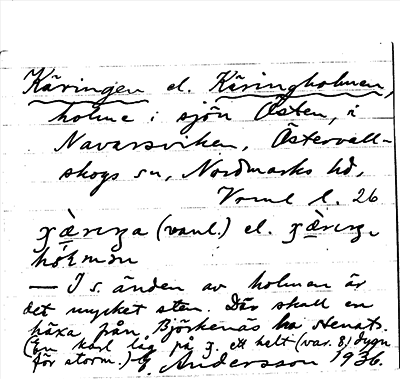 Käringen el. Käringholmen,
holme i sjön Östen, i
Navarsviken, Östervall-
skogs sn, Nordmarks hd,
Vrml l. 26
(vanl.) el.
— I s. änden av holmen är
det mycket sten. Där skall en
häxa från Björkenäs ha stenats.
(En karl låg på h. ett helt (var. 8) dygn
för storm.) G. Andersson 1936.